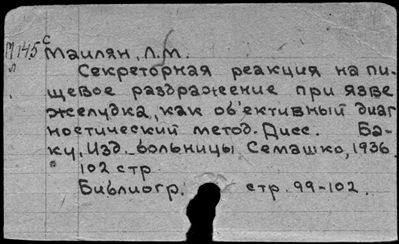 М145с Маилян, Л.М.
Секреторная реакция на пи-
щевое раздражение при язве
желудка, как об'ективный диаг
ностический метод. Дисс. Ба-
ку, Изд. больницы Семашко, 1936.
102 стр
Библиогр. стр. 99-102.